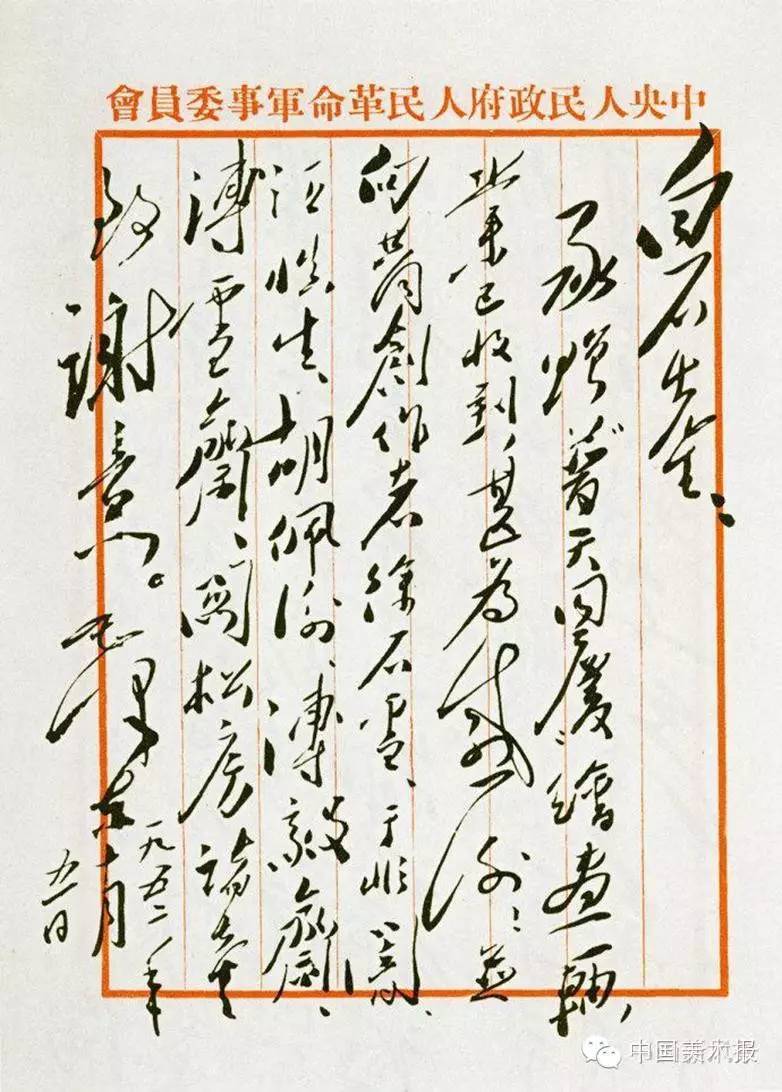 中央人民政府人民革命軍事委員會
白石先生：
承贈普天同慶繪畫一軸，
業已收到，甚為感謝！並
向共同創作者徐石雪、于非闇、
汪慎生、胡佩衡、溥毅齋、
溥雪齋、關松房諸先生
致謝意。毛澤东
一九五二年
十月
五日
中国美术报